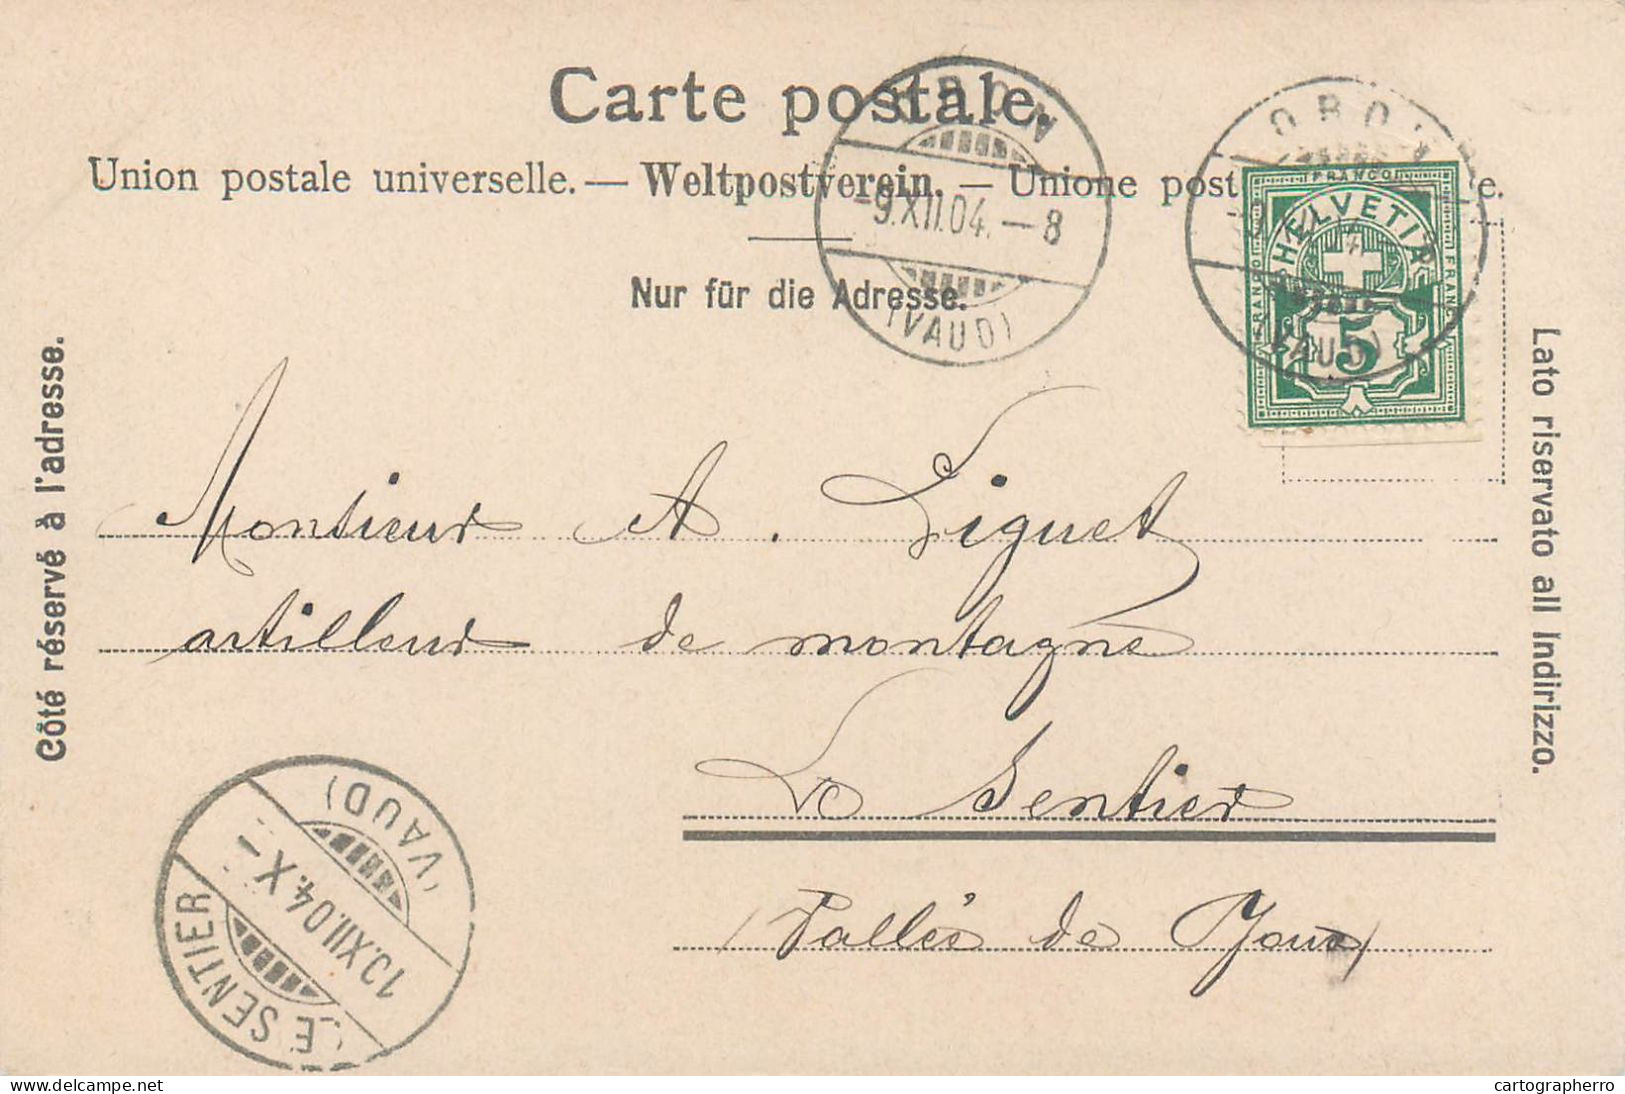 Carte postale.
Union postale universelle. — Weltpostverein. — Unione post e.
Nur für die Adresse.
Côté réservé à l'adresse.
Lato riservato all Indirizzo.
ORON
-9.XII.04.—8
(VAUD)
ORON
(VAUD)
FRANCO
HELVETIA
FRANCO
FRANCO
5
Monsieur A. Liguet
artilleur de montagne
Le Sentier
(Vallée de Joux)
LE SENTIER
10.XII.04.X—
(VAUD)
delcampe.net
cartographerro